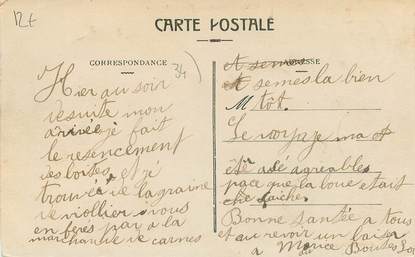 12€
CARTE POSTALE
CORRESPONDANCE
34
ADRESSE
Hier au soir
resuite mon
arrivée je fait
le resencement
des boites et je
trouvé de la graine
de viollier vous
en feres par a la
marchande de carmes
A semes
et semes la bien
M tôt.
Le voyage ma
été agreables
pace que la boue etait
che faiche
Bonne santée a tous
et au revoir un baiser
a